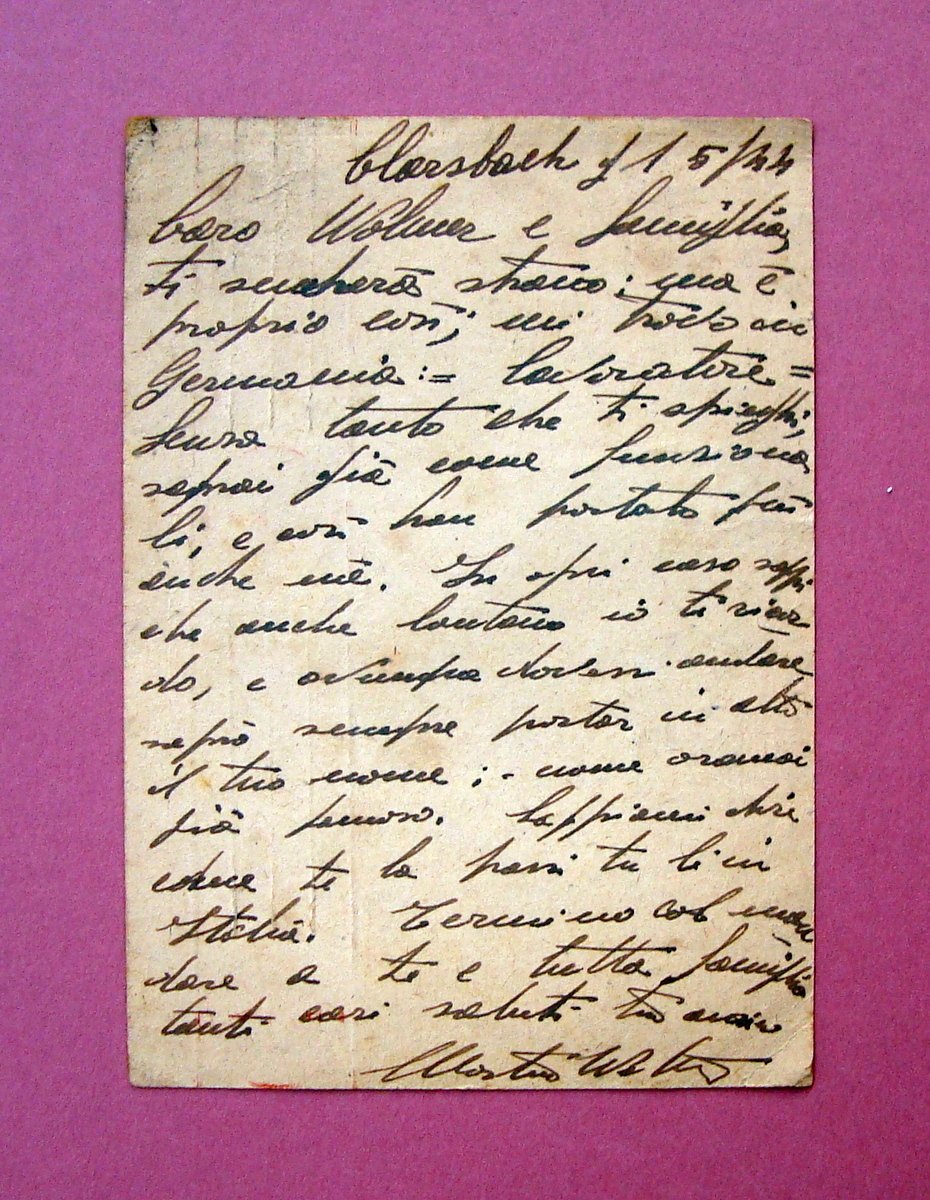 Clarsbach li 1 5/44
Caro Wolmer e famiglia,
ti sembrerà strano: ma è
proprio così; mi trovo in
Germania := lavoratore =
Senza tanto che ti spieghi,
saprai già come funziona
li, e così han portato su
anche mè. In ogni caso sappi
che anche lontano io ti ricor
do, e ovunque dovessi andare
saprò sempre portar in alto
il tuo nome; - nome oramai
già famoso. Sappiami dire
come te la passi tu li in
Italia. Termino col man
dare a te e tutta famiglia
tanti cari saluti tuo amico